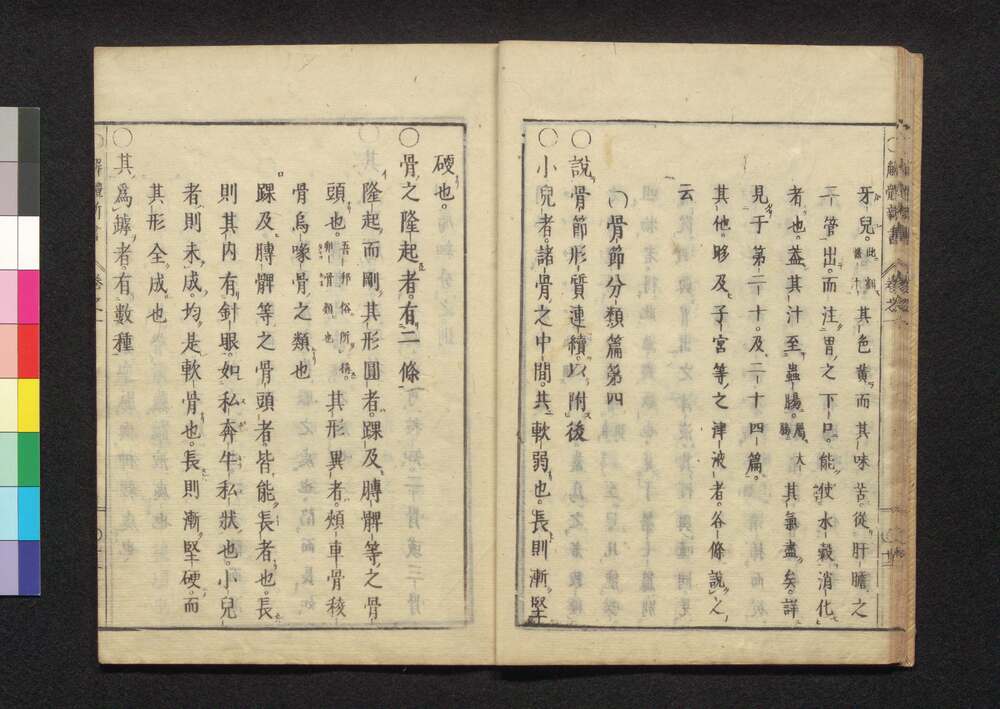 牙兒。此翻膽汁其色黄而其味苦從肝膽之
二管出而注胃之下口。能使水穀消化
者也。蓋其汁至蟲腸。屬大腸其氣盡矣。詳
見于第二十及二十四篇。
其他。夥及子宮等之津液者。各條說之
云
〇骨節分類篇第四
〇說骨節形質連續以附後
〇小兒者。諸骨之中間。共軟弱也。長則漸堅
硬也。
〇骨之隆起者。有二條
隆起而剛。其形圓者。踝及膞髀等之骨
頭也。吾邦俗所稱卵骨類也其形異者。頰車骨稜
骨烏喙骨之類也
踝及膞髀等之骨頭者皆能長者也。長
則其内有針眼。如私奔牛私狀也。小兒
者則未成。均是軟骨也。長則漸堅硬。而
其形全成也
〇其爲罅者。有數種
解體新書
卷之一